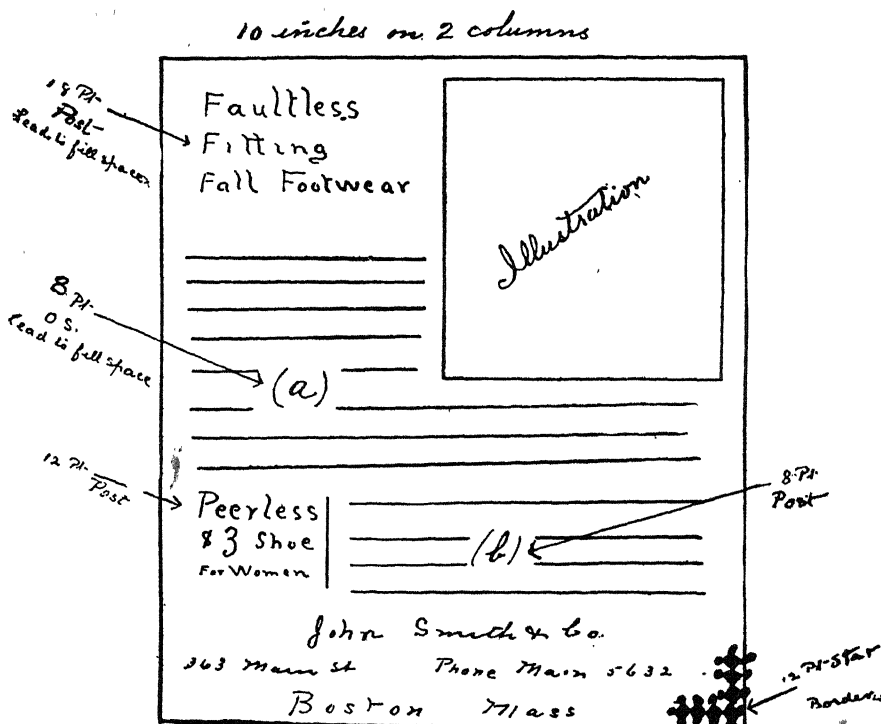 10 inches on 2 columns
18 Pt
Post
Lead to fill space
Faultless
Fitting
Fall Footwear
Illustration
8 Pt
O S.
Lead to fill space
(a)
12 Pt
Post
Peerless
$3 Shoe
For Women
(b)
8 Pt
Post
John Smith & Co.
363 Main St Phone Main 5632
Boston Mass
12 Pt Star
Border